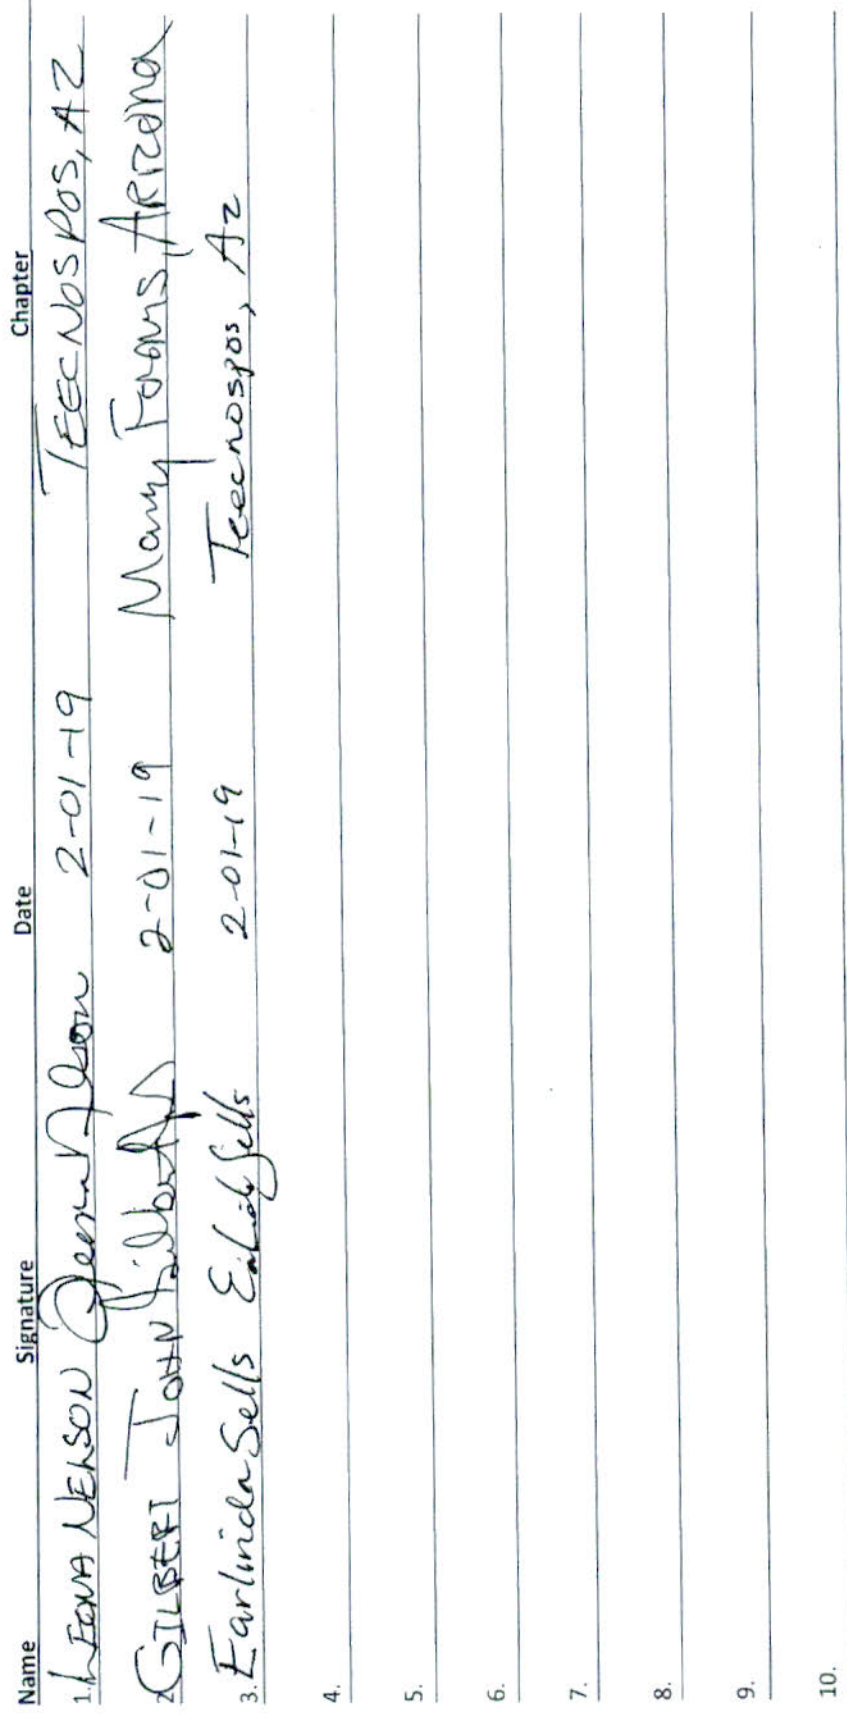 Name Signature Date Chapter
1. LEONA NELSON Leona Nelson 2-01-19 TEECNOSPOS, AZ
2. GILBERT JOHN Gilbert 2-01-19 Many Farms, ARIZONA
3. Earlinda Sells Earlinda Sells 2-01-19 Teecnospos, Az
4.
5.
6.
7.
8.
9.
10.